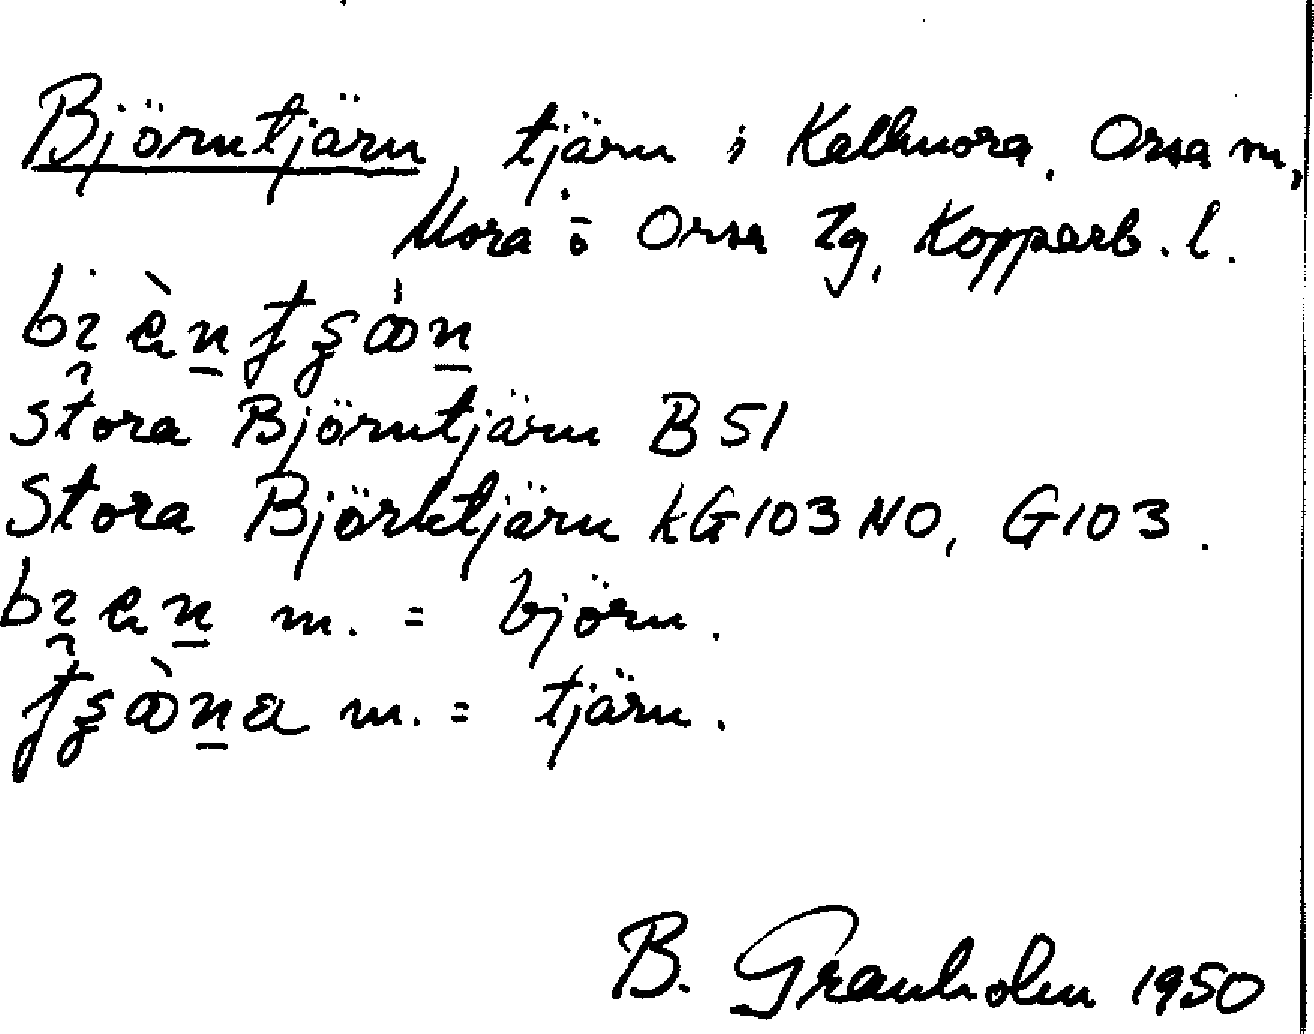 Björntjärn, tjärn i Kallmora, Orsa m,
Mora o Orsa tg, Kopparb. l.
Stora Björntjärn B 51
Stora Björktjärn KG103 NO, G103.
m. = björn.
m. = tjärn.
B. Granholm 1950